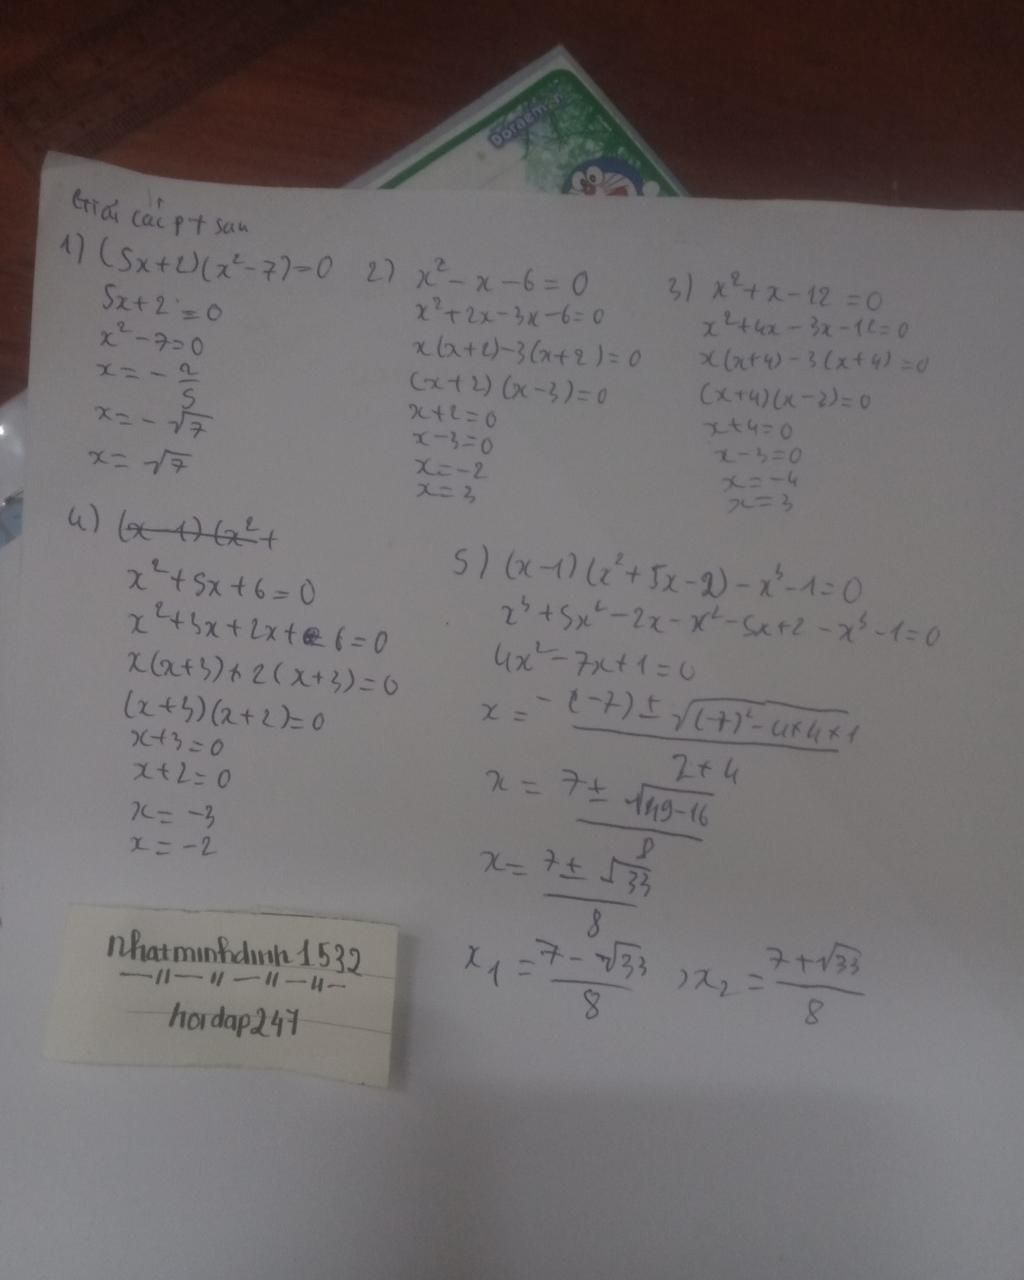 Doraemon
Giải các pt sau
1) (5x+2)(x²-7)=0
5x+2=0
x²-7=0
x=-2/5
x=-√7
x=√7
2) x²-x-6=0
x²+2x-3x-6=0
x(x+2)-3(x+2)=0
(x+2)(x-3)=0
x+2=0
x-3=0
x=-2
x=3
3) x²+x-12=0
x²+4x-3x-12=0
x(x+4)-3(x+4)=0
(x+4)(x-3)=0
x+4=0
x-3=0
x=-4
x=3
4) (x-1)(x²+
x²+5x+6=0
x²+3x+2x+6=0
x(x+3)+2(x+3)=0
(x+3)(x+2)=0
x+3=0
x+2=0
x=-3
x=-2
5) (x-1)(x²+5x-2)-x³-1=0
x³+5x²-2x-x²-5x+2-x³-1=0
4x²-7x+1=0
x=(-(-7)±√((-7)²-4×4×1))/(2+4)
x=(7±√(49-16))/8
x=(7±√33)/8
x₁=(7-√33)/8 , x₂=(7+√33)/8
nhatminhdinh1532
hoidap247